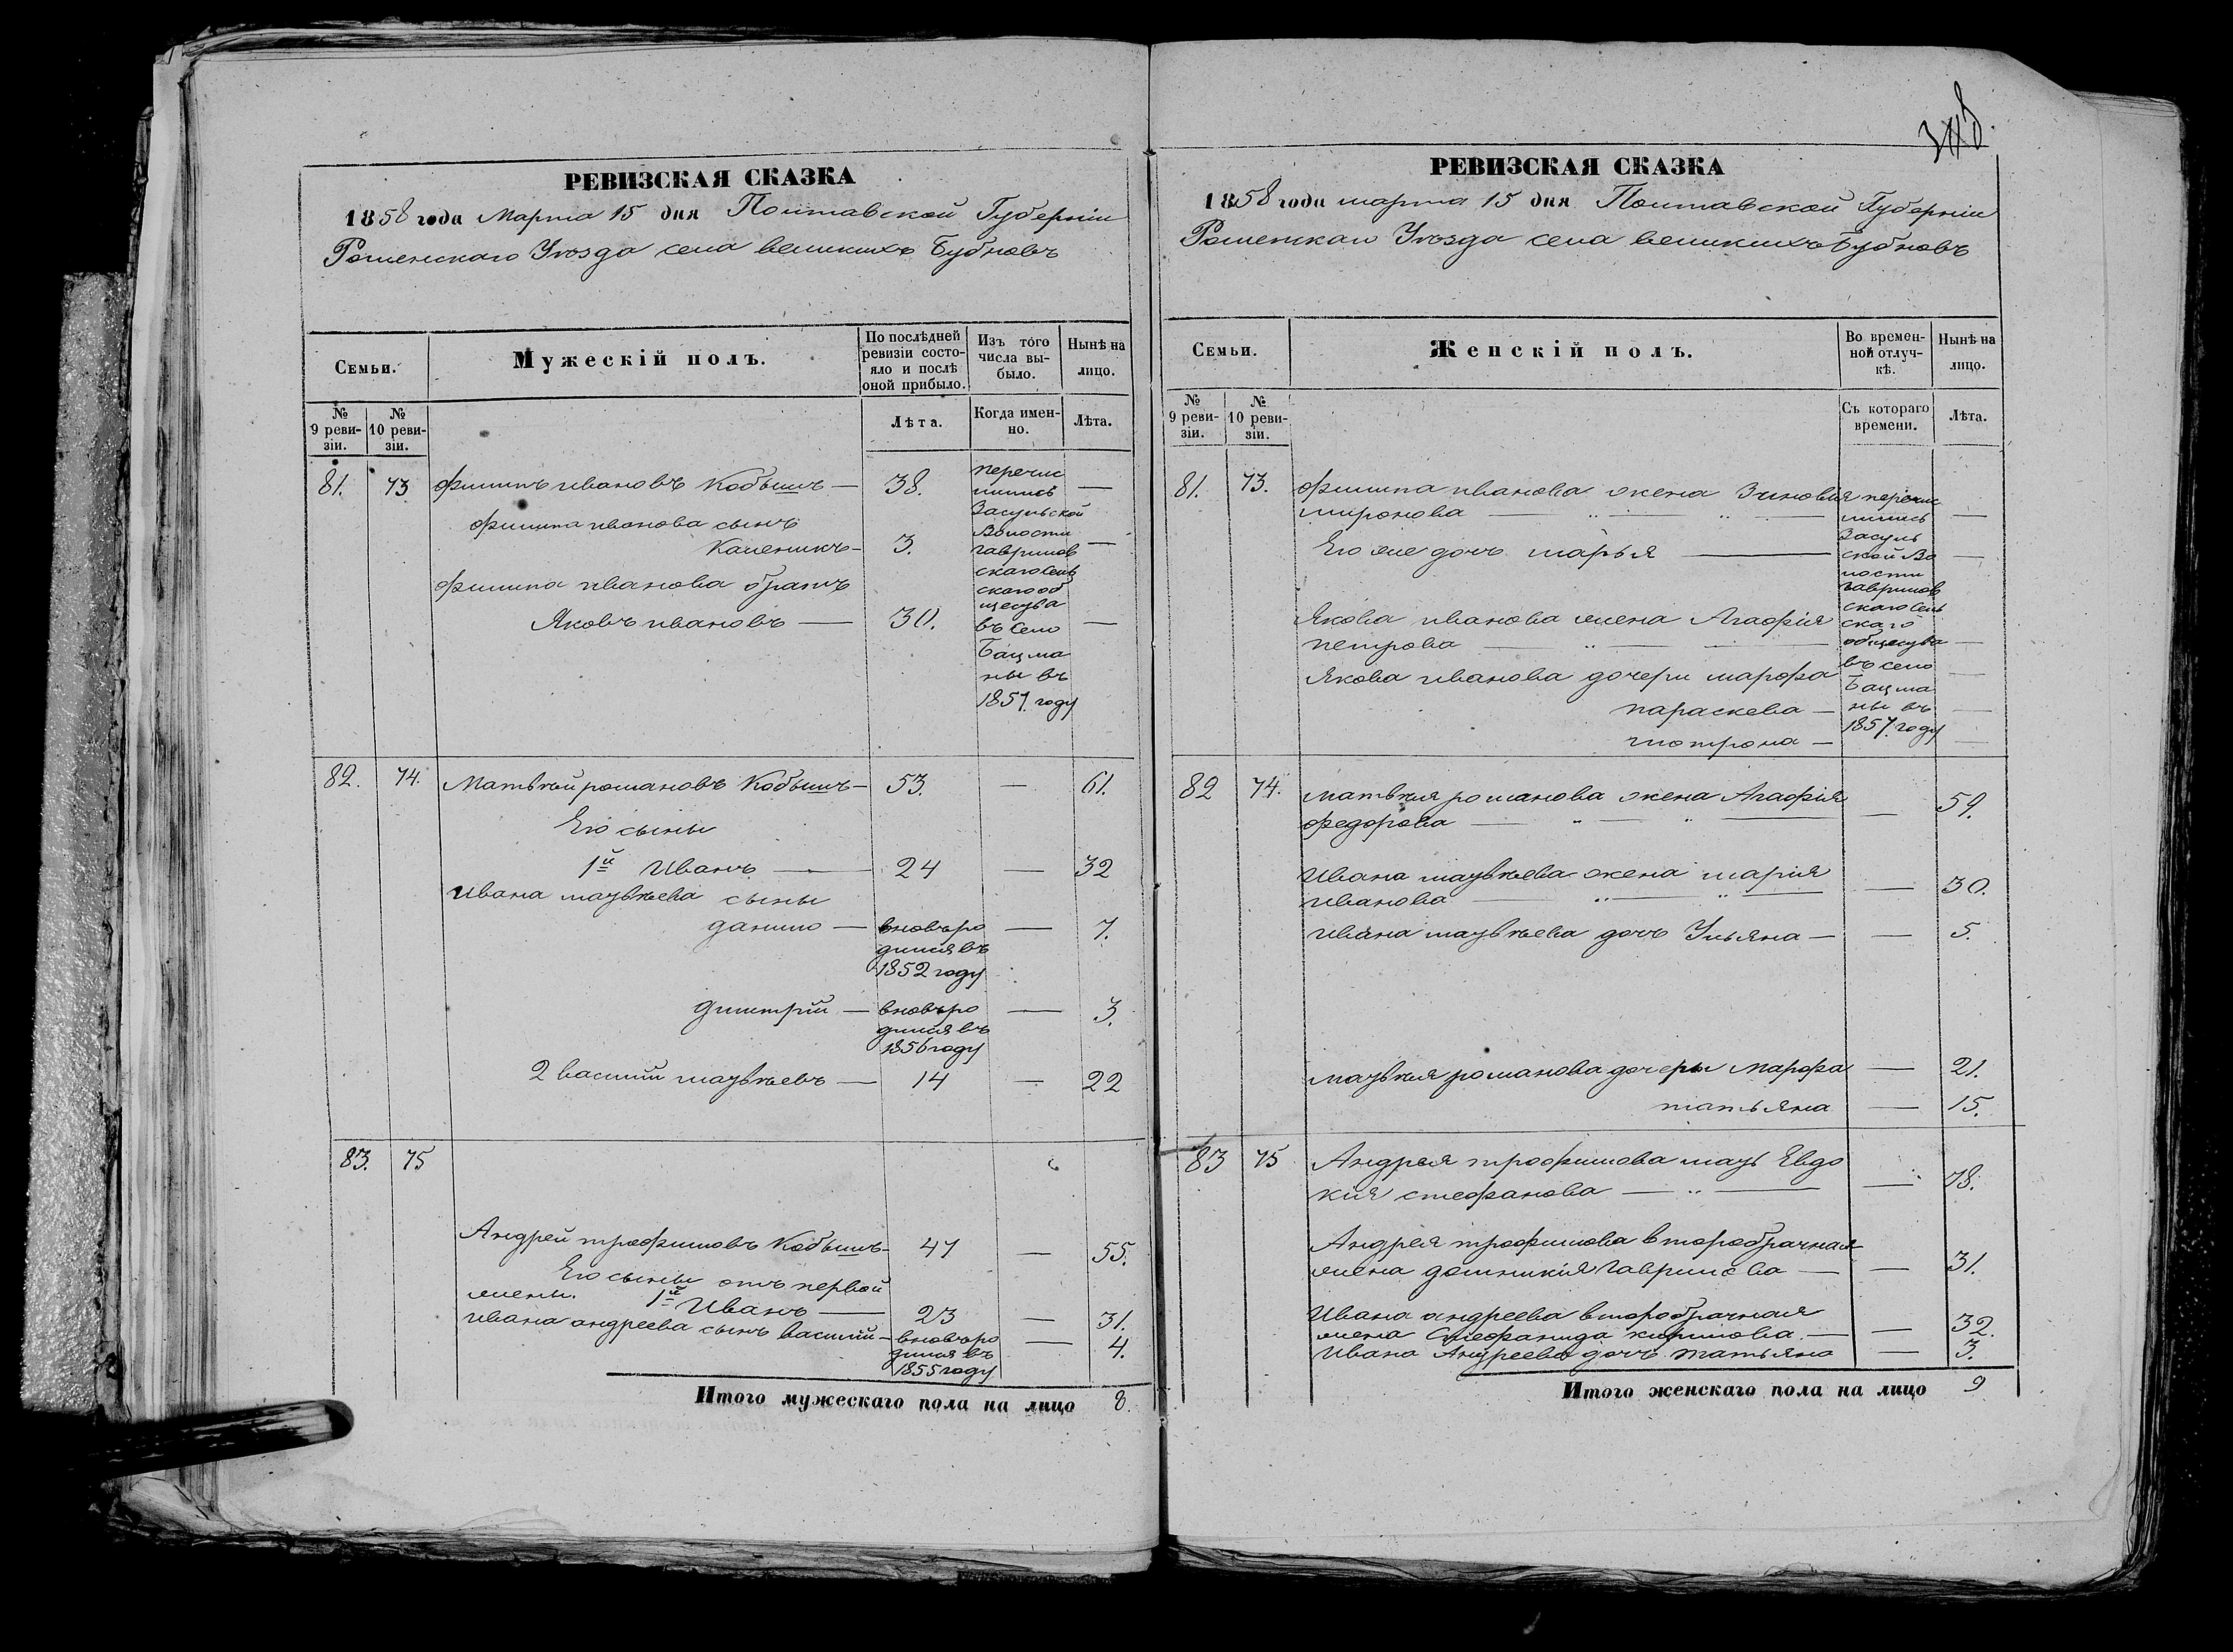 РЕВИЗСКАЯ СКАЗКА
1858 года Марта 15 дня Полтавской Губерніи
Роменскаго Уѣзда села великихъ Бубновъ
Семьи.
Мужескій полъ.
По послѣдней ревизіи состояло и послѣ оной прибыло.
Изъ того числа выбыло.
Нынѣ на лицо.
№ 9 ревизіи.
№ 10 ревизіи.
Лѣта.
Когда именно.
Лѣта.
81. 73 Филипъ ивановъ Кобышъ — 38. —
Филипа иванова сынъ
Каленикъ — 3. —
Филипа иванова братъ
Яковъ ивановъ — 30. —
перечис
лились
Засульской
Волости
гаврилов
скаго Сель
скаго об
щества
въ Село
Бацма
ны въ
1857. году
82. 74. Матвѣй романовъ Кобышъ — 53. — 61.
Его сыны
1й Иванъ — 24 — 32
Ивана матвѣева сыны
данило — вновь ро — 7.
дился въ
1852 году
димитрій — вновь ро — 3.
дился въ
1856 году
2 василій матвѣевъ — 14 — 22
83. 75
Андрей трофимовъ Кобышъ — 47 — 55.
Его сыны отъ первой
жены. 1й Иванъ — 23 — 31.
ивана андреева сынъ василій — вновь ро — 4.
дился въ
1855 году
Итого мужескаго пола на лицо 8.
РЕВИЗСКАЯ СКАЗКА
1858 года марта 15 дня Полтавской Губерніи
Роменскаго Уѣзда села великихъ Бубновъ
Семьи.
Женскій полъ.
Во временной отлучкѣ.
Нынѣ на лицо.
№ 9 ревизіи.
№ 10 ревизіи.
Съ котораго времени.
Лѣта.
81. 73. Филипа иванова жена Зиновія
миронова — —
Его же дочь марья — —
Якова иванова жена Агафія
петрова — —
Якова иванова дочери марфа —
параскева — —
мотрона — —
перечис
лились
Засуль
ской Во
лости
гаврилов
скаго Сель
скаго
общества
въ село
Бацма
ны въ
1857. году
82 74. матвѣя романова жена Агафія
федорова — — 59.
Ивана матвѣева жена марія
иванова — — 30.
ивана матвѣева дочь Ульяна — — 5.
матвѣя романова дочеры марфа — 21.
татьяна — 15.
83 75 Андрея трофимова мать Евдо
кия стефанова — — 78.
Андрея трофимова второбрачная
жена домникия гаврилова — — 31.
Ивана андреева второбрачная
жена Стефанида кирилова. — — 32.
Ивана Андреева дочь татьяна — 3.
Итого женскаго пола на лицо 9